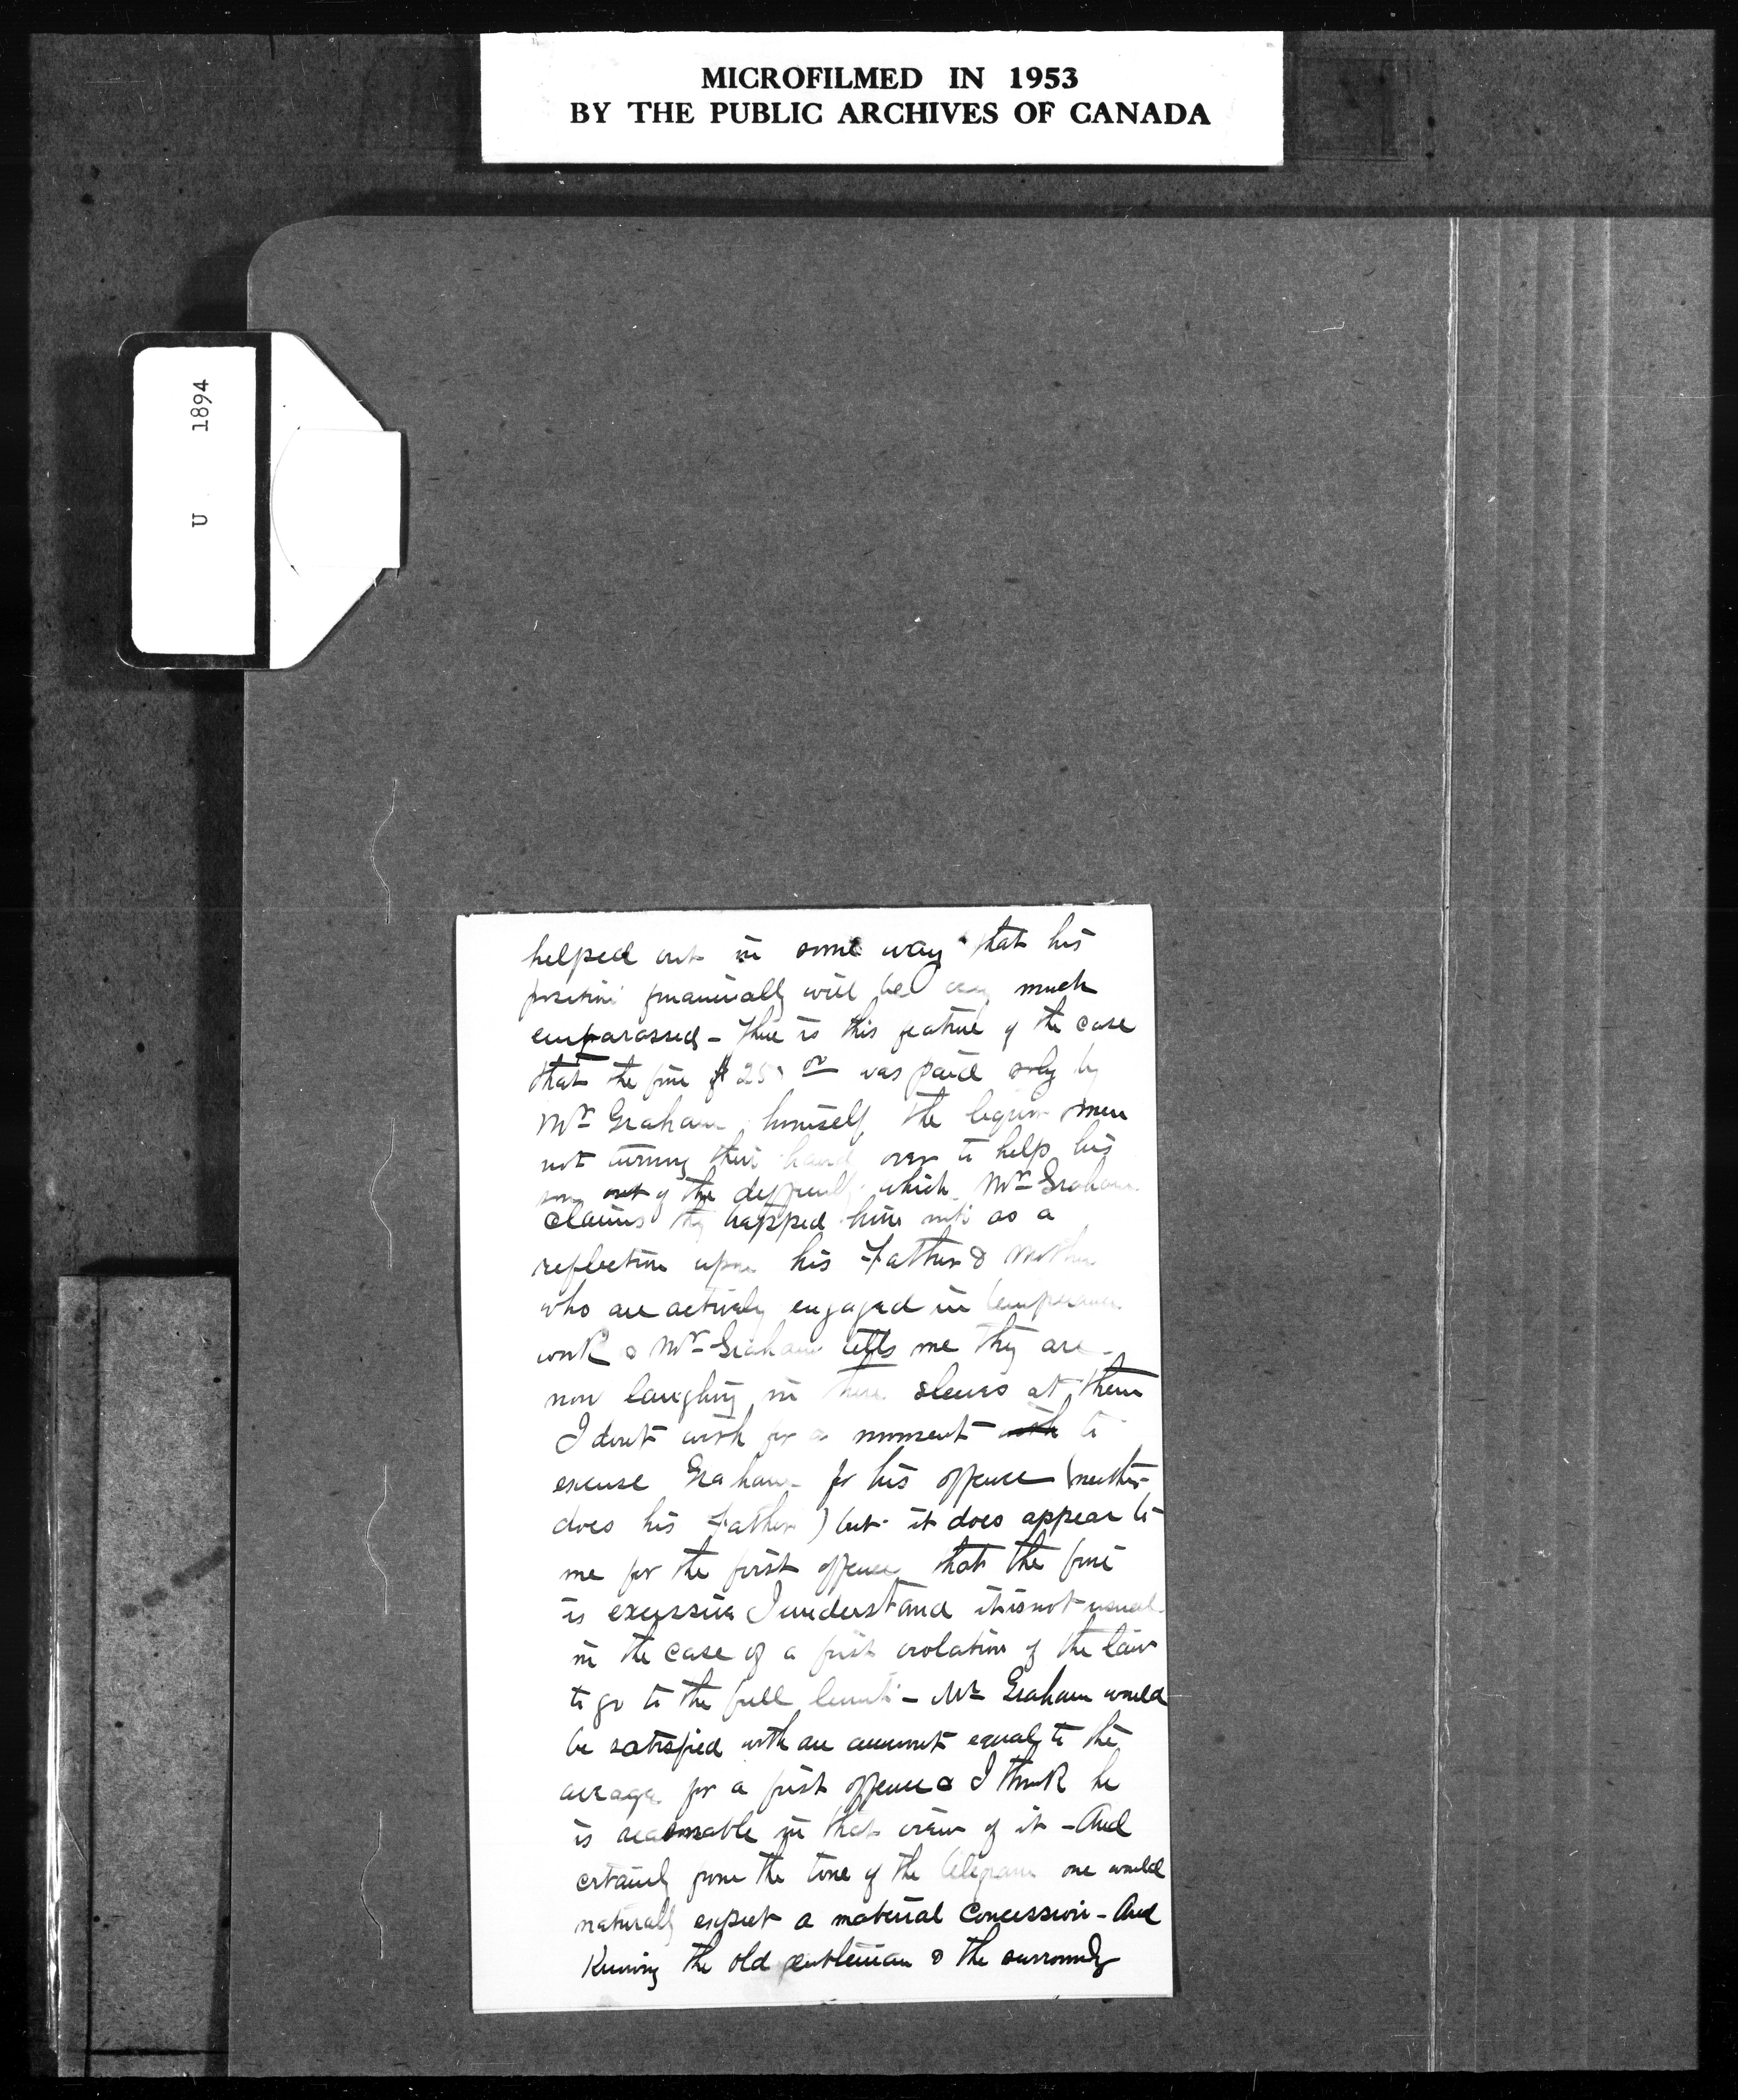 MICROFILMED IN 1953
BY THE PUBLIC ARCHIVES OF CANADA
U 1894
helped out in some way that his
position financially will be very much
embarassed - There is this feature of the case
that the fine $ 25 was paid only by
Mr Graham himself the liquor men
not turning their hand over to help his
son out of the difficulty which Mr Graham
claims they trapped him into as a
reflection upon his Father & Mother
who are actively engaged in temperance
work & Mr Graham tells me they are
now laughing in there sleves at them
I dont wish for a moment to
excuse Graham for his offence (neither
does his Father) but it does appear to
me for the first offence that the fine
is excessive I understand it is not usual
in the case of a first violation of the law
to go to the full limit - Mr Graham would
be satisfied with an amount equal to the
average for a first offence & I think he
is reasonable in that view of it - And
certainly from the tone of the telegram one would
naturally expect a material concession - And
Knowing the old gentleman & the